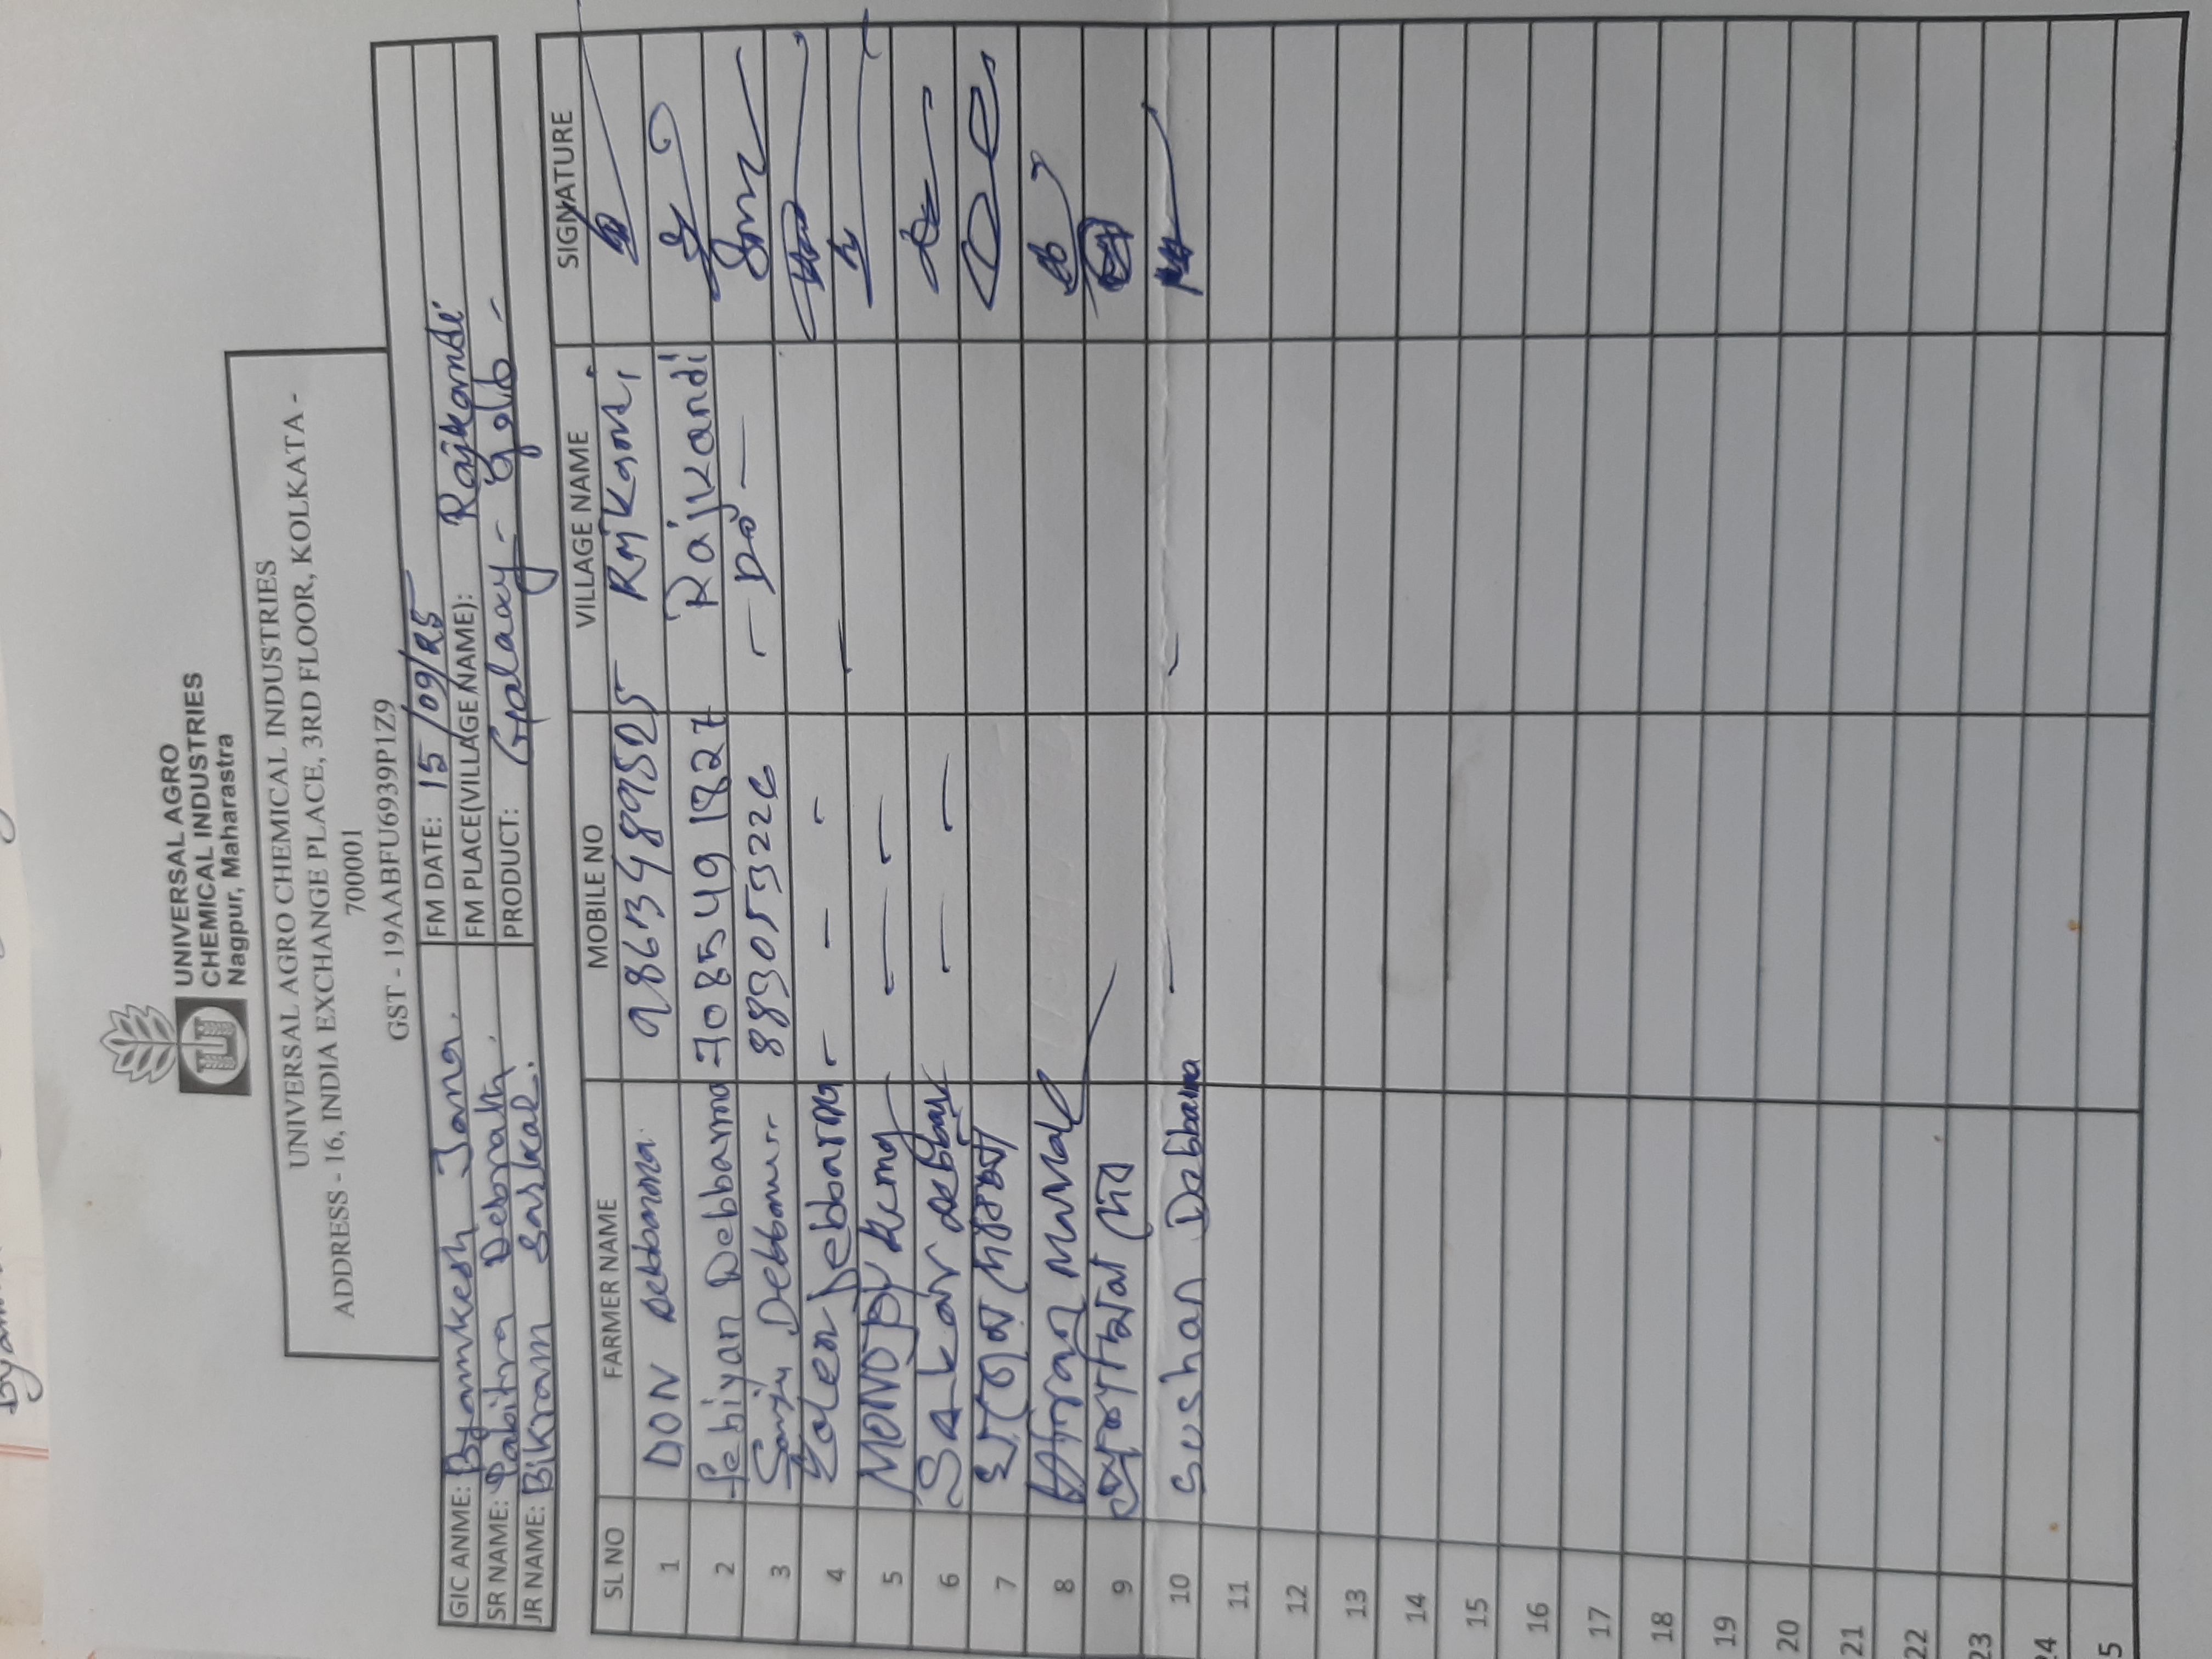 UNIVERSAL AGRO
CHEMICAL INDUSTRIES
Nagpur, Maharastra
UNIVERSAL AGRO CHEMICAL INDUSTRIES
ADDRESS - 16, INDIA EXCHANGE PLACE, 3RD FLOOR, KOLKATA -
700001
GST - 19AABFU6939P1Z9
GIC ANME: Byamkesh Jana. FM DATE: 15/09/25
SR NAME: Pabitra Debnath. FM PLACE(VILLAGE NAME): Rajkandi
JR NAME: Bikram Sarkar. PRODUCT: Galaxy -
SL NO FARMER NAME MOBILE NO VILLAGE NAME SIGNATURE
1 DON Debbarma Rajkandi
2 Debbarma 7085491827 Rajkandi
3 Sanju Debbarma - Do -
4 Debbarma - - -
5 - -
6 - -
7
8
9
10 Sushan Debbarma -
11
12
13
14
15
16
17
18
19
20
21
22
23
24
5